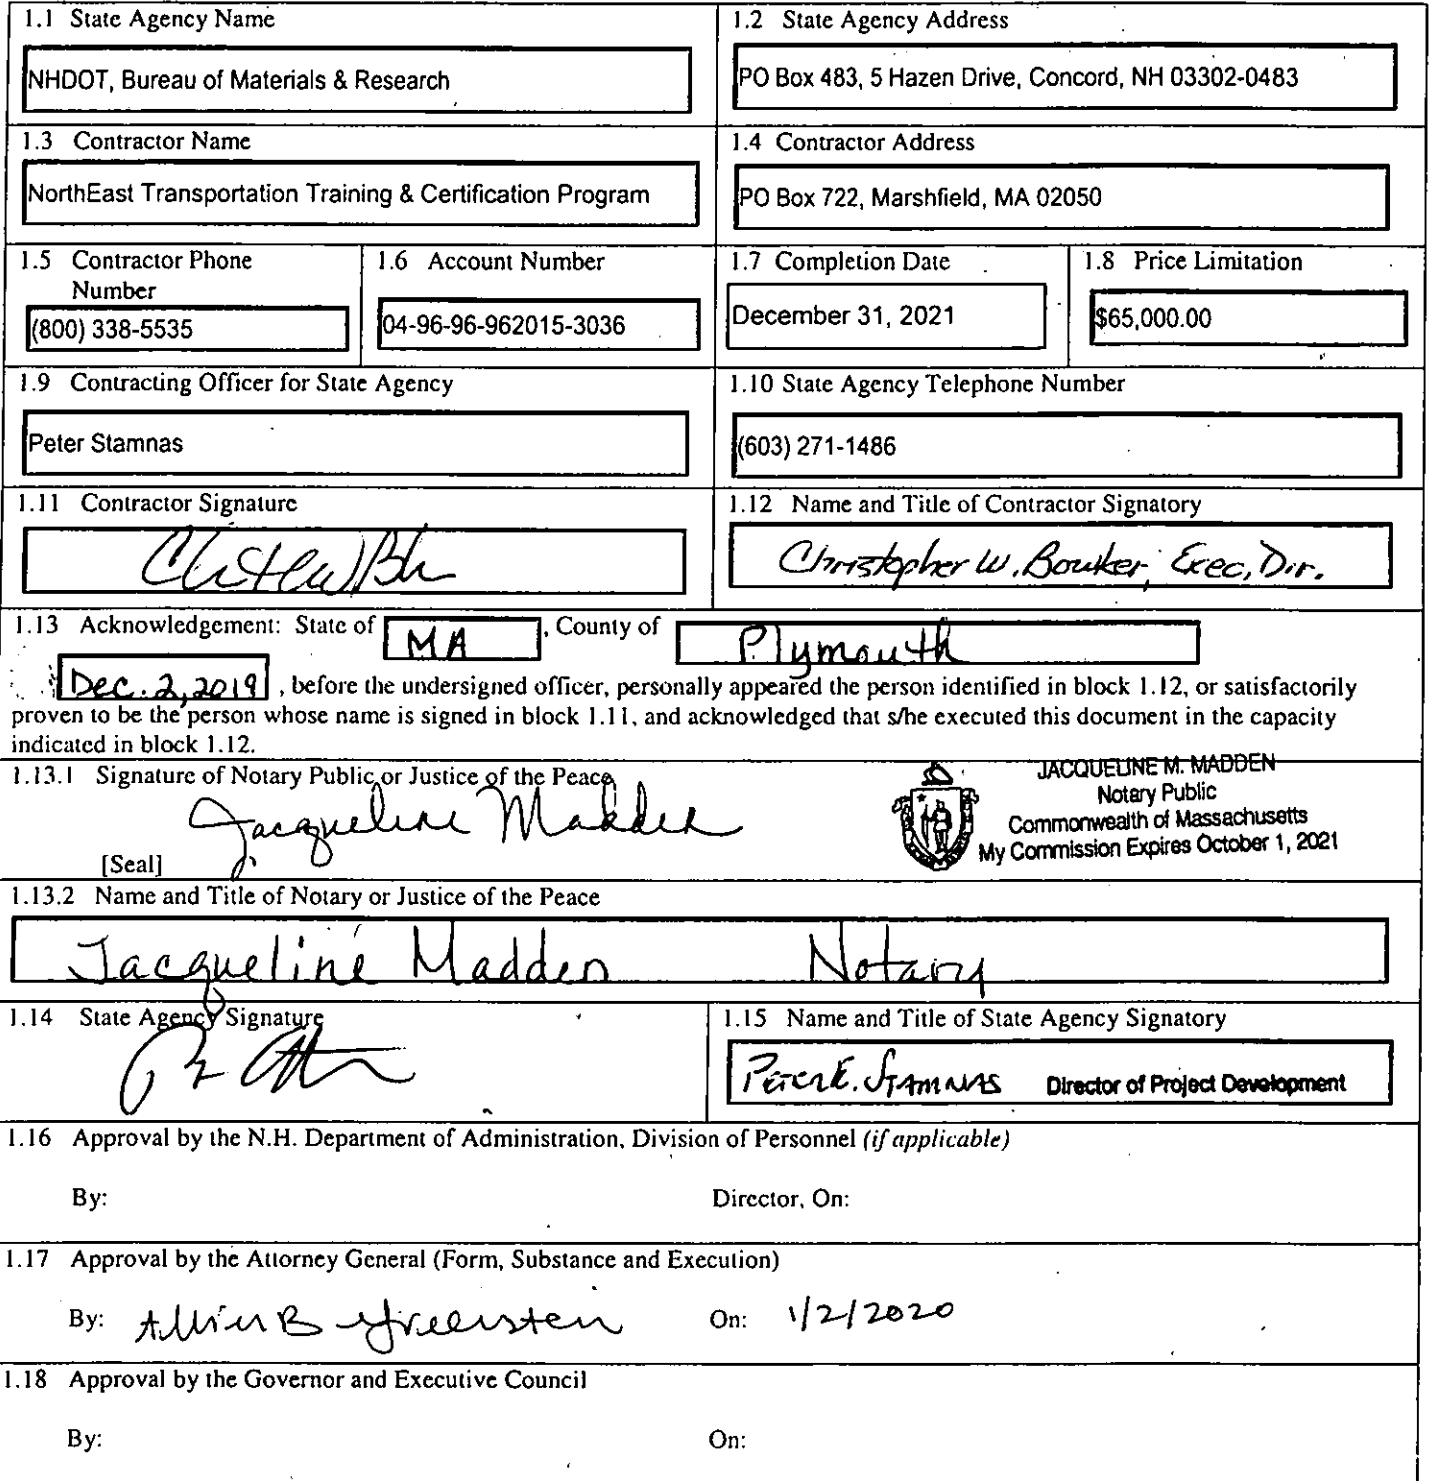 1.1 State Agency Name
NHDOT, Bureau of Materials & Research
1.2 State Agency Address
PO Box 483, 5 Hazen Drive, Concord, NH 03302-0483
1.3 Contractor Name
NorthEast Transportation Training & Certification Program
1.4 Contractor Address
PO Box 722, Marshfield, MA 02050
1.5 Contractor Phone
Number
(800) 338-5535
1.6 Account Number
04-96-96-962015-3036
1.7 Completion Date
December 31, 2021
1.8 Price Limitation
$65,000.00
1.9 Contracting Officer for State Agency
Peter Stamnas
1.10 State Agency Telephone Number
(603) 271-1486
1.11 Contractor Signature
1.12 Name and Title of Contractor Signatory
Christopher W. Bowker, Exec, Dir.
1.13 Acknowledgement: State of MA, County of Plymouth
Dec. 2, 2019, before the undersigned officer, personally appeared the person identified in block 1.12, or satisfactorily
proven to be the person whose name is signed in block 1.11, and acknowledged that s/he executed this document in the capacity
indicated in block 1.12.
1.13.1 Signature of Notary Public or Justice of the Peace
Jacqueline Madden
[Seal]
JACQUELINE M. MADDEN
Notary Public
Commonwealth of Massachusetts
My Commission Expires October 1, 2021
1.13.2 Name and Title of Notary or Justice of the Peace
Jacqueline Madden Notary
1.14 State Agency Signature
1.15 Name and Title of State Agency Signatory
Peter E. Stamnas Director of Project Development
1.16 Approval by the N.H. Department of Administration, Division of Personnel (if applicable)
By: Director, On:
1.17 Approval by the Attorney General (Form, Substance and Execution)
By: Allison B Greenstein On: 1/2/2020
1.18 Approval by the Governor and Executive Council
By: On: